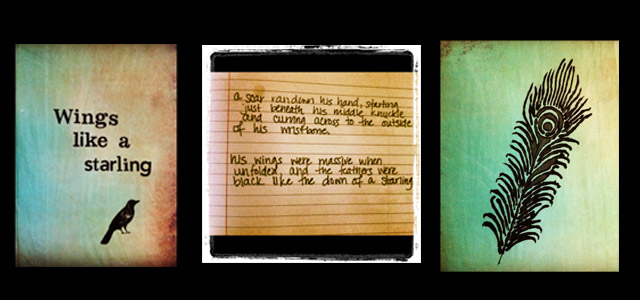 Wings
like a
starling
a scar ran down his hand, starting
just beneath his middle knuckle
and curving across to the outside
of his wristbone.
his wings were massive when
unfolded, and the feathers were
black like the down of a starling